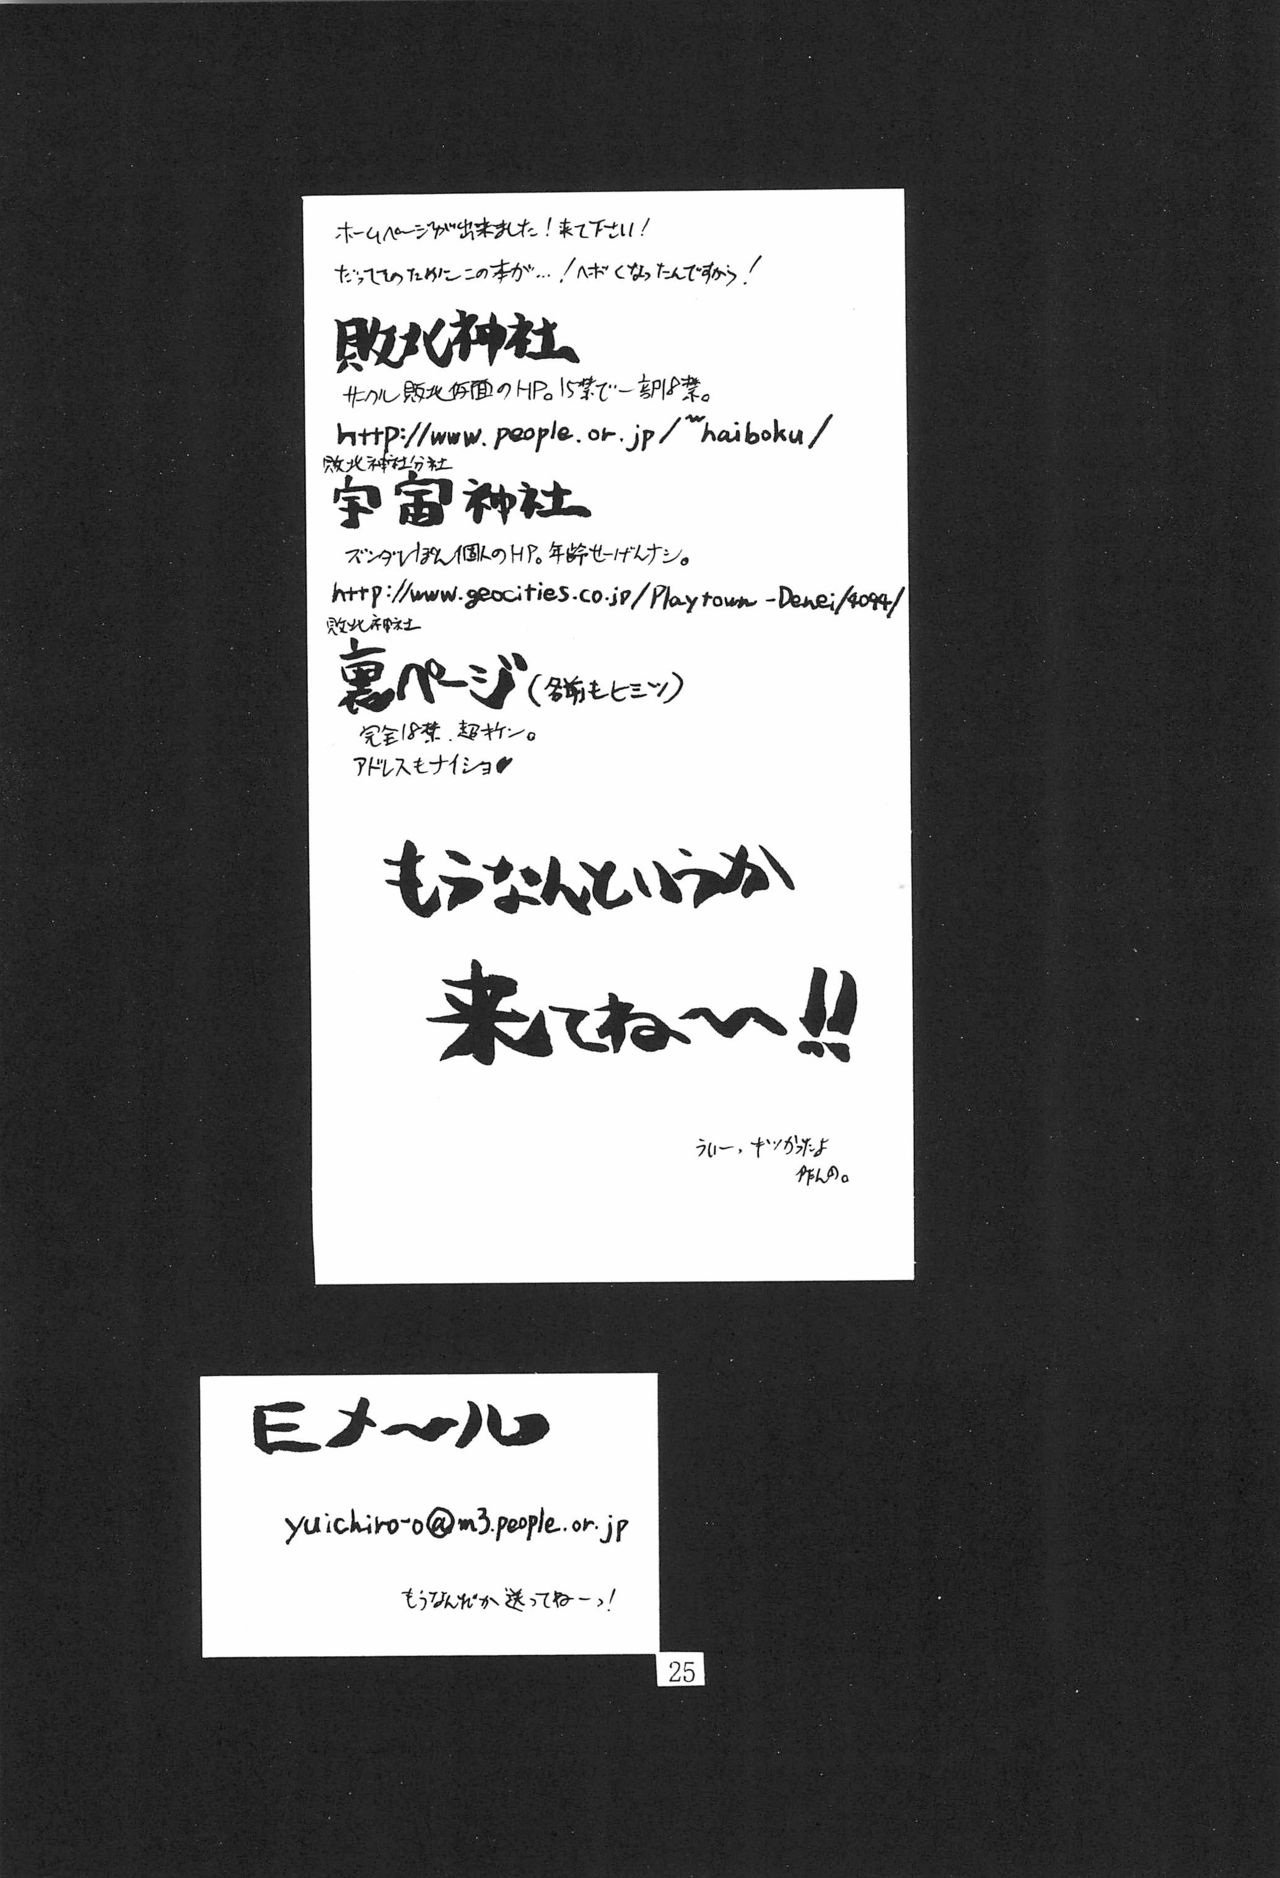 ホームページが出来ました！来て下さい！
だってそのためにこの本が…！ヘボくなったんですから！
敗北神社
サークル敗北仮面のHP。15禁で一部18禁。
http://www.people.or.jp/~haiboku/
敗北神社分社
宇宙神社
ズンダレぽん個人のHP。年齢せーげんナシ。
http://www.geocities.co.jp/Playtown-Denei/4094/
敗北神社
裏ページ(名前もヒミツ)
完全18禁、超キケン。
アドレスもナイショ♥
もうなんというか
来てね〜〜!!
うぃー、キツかったよ
作んの。
Eメ〜ル
yuichiro-o@m3.people.or.jp
もうなんだか送ってねーっ！
25